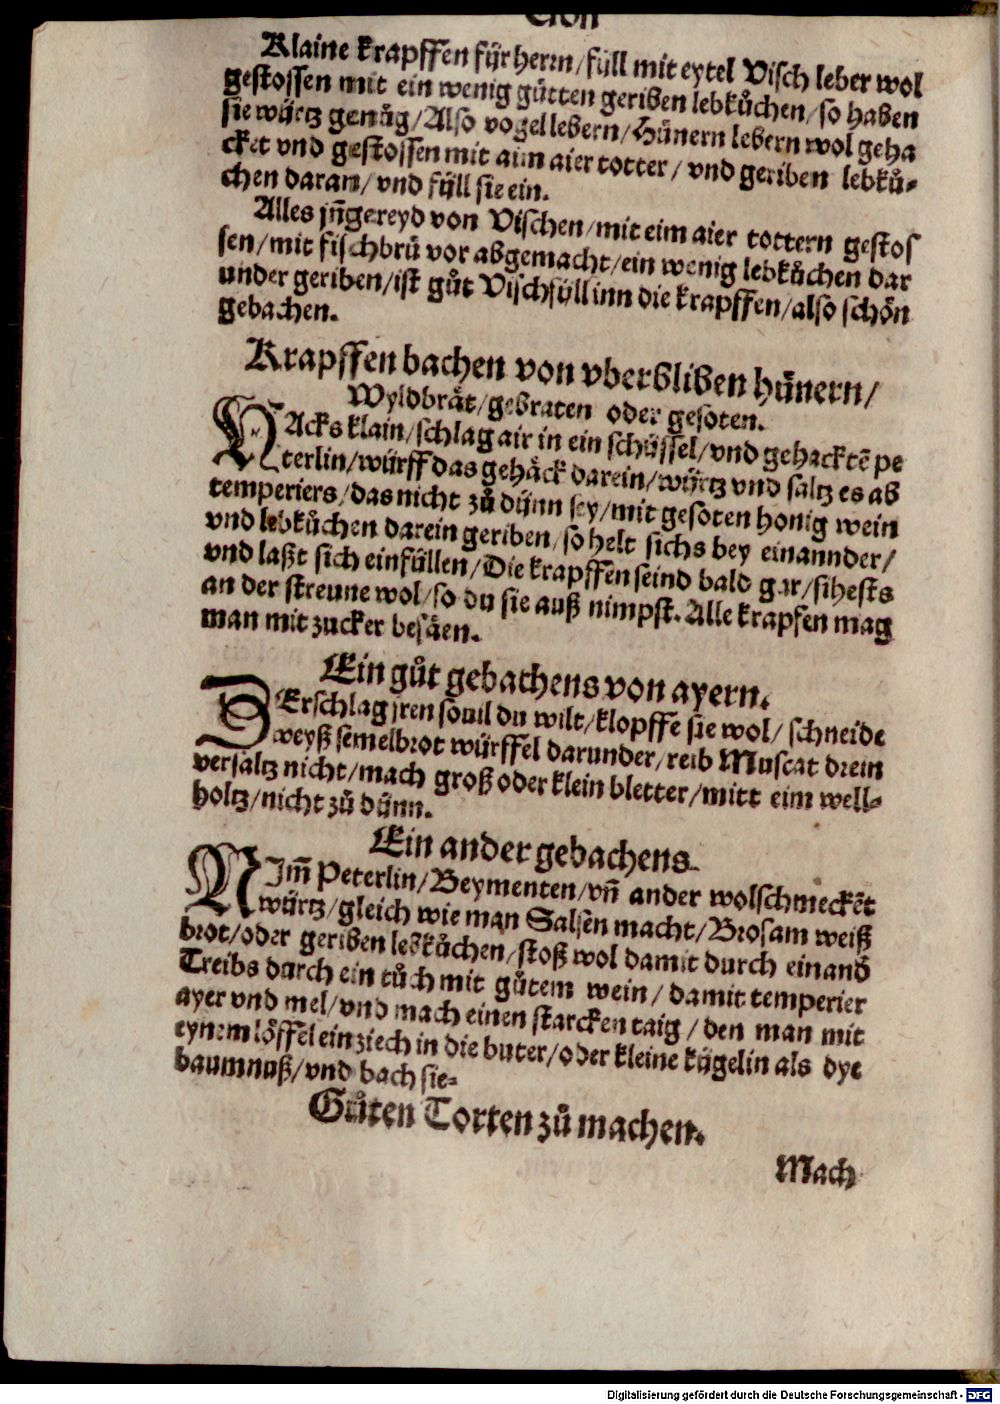 Von
Klaine krapffen fürherrn/füll mit eytel Visch leber wol
gestossen mit ein wenig gůtten geriben lebkůchen/so haben
sie würtz genůg/Also vogel lebern/Hünern lebern wol geha
cket vnd gestossen mit aim aier totter/ vnd geriben lebků-
chen daran/ vnd füll sie ein.
Alles jñgereyd von Vischen/mit eim aier tottern gestos
sen/mit fischbrů vor abgemacht/ein wenig lebkůchen dar
under geriben/ist gůt Vischfüll inn die krapffen/also schön
gebachen.
Krapffen bachen von vberbliben hünern/
Wyldbrät/gebraten oder gesoten.
HAcks klain/schlag air in ein schüssel/vnd gehacktē pe
terlin/würff das gehäck darein/würtz vnd saltz es ab
temperiers/das nicht zů dünn sey/mit gesoten honig wein
vnd lebkůchen darein geriben/so helt sichs bey einannder/
vnd laßt sich einfüllen/Die krapffen seind bald gar/sihests
an der streune wol/so du sie auß nimpst. Alle krapfen mag
man mit zucker besäen.
Ein gůt gebachens von ayern.
DErschlag jren souil du wilt/klopffe sie wol/ schneide
weyß semelbrot würffel darunder/reib Muscat drein
versaltz nicht/mach groß oder klein bletter/mitt eim well-
holtz/nicht zů dünn.
Ein ander gebachens.
NIm̃ Peterlin/Beymenten/vñ ander wolschmeckēt
würtz/gleich wie man Salsen macht/Brosam weiß
brot/oder geriben lebkůchen/stoß wol damit durch einand
Treibs durch ein tůch mit gůtem wein/ damit temperier
ayer vnd mel/vnd mach einen starcken taig/den man mit
eynem löffel einziech in die buter/oder kleine kügelin als dye
baumnuß/vnd bach sie.
Gůten Torten zů machen.
Mach
Digitalisierung gefördert durch die Deutsche Forschungsgemeinschaft - DFG